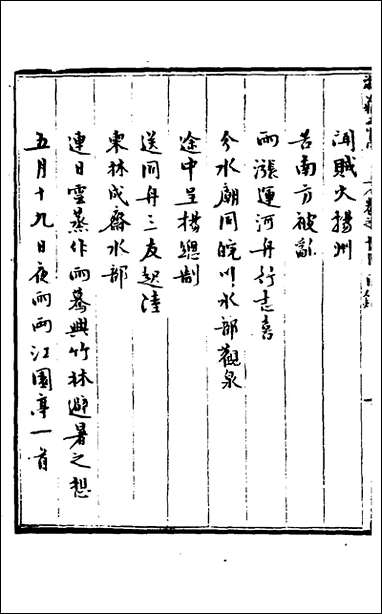 聞賊火揚州
苦南方被亂
雨漲運河舟行志喜
分水廟同皖川水部觀泉
途中呈楊總制
送同舟三友起陸
柬林成齋水部
連日雲蒸作雨驀興竹林避暑之想
五月十九日夜雨兩江園亭一首